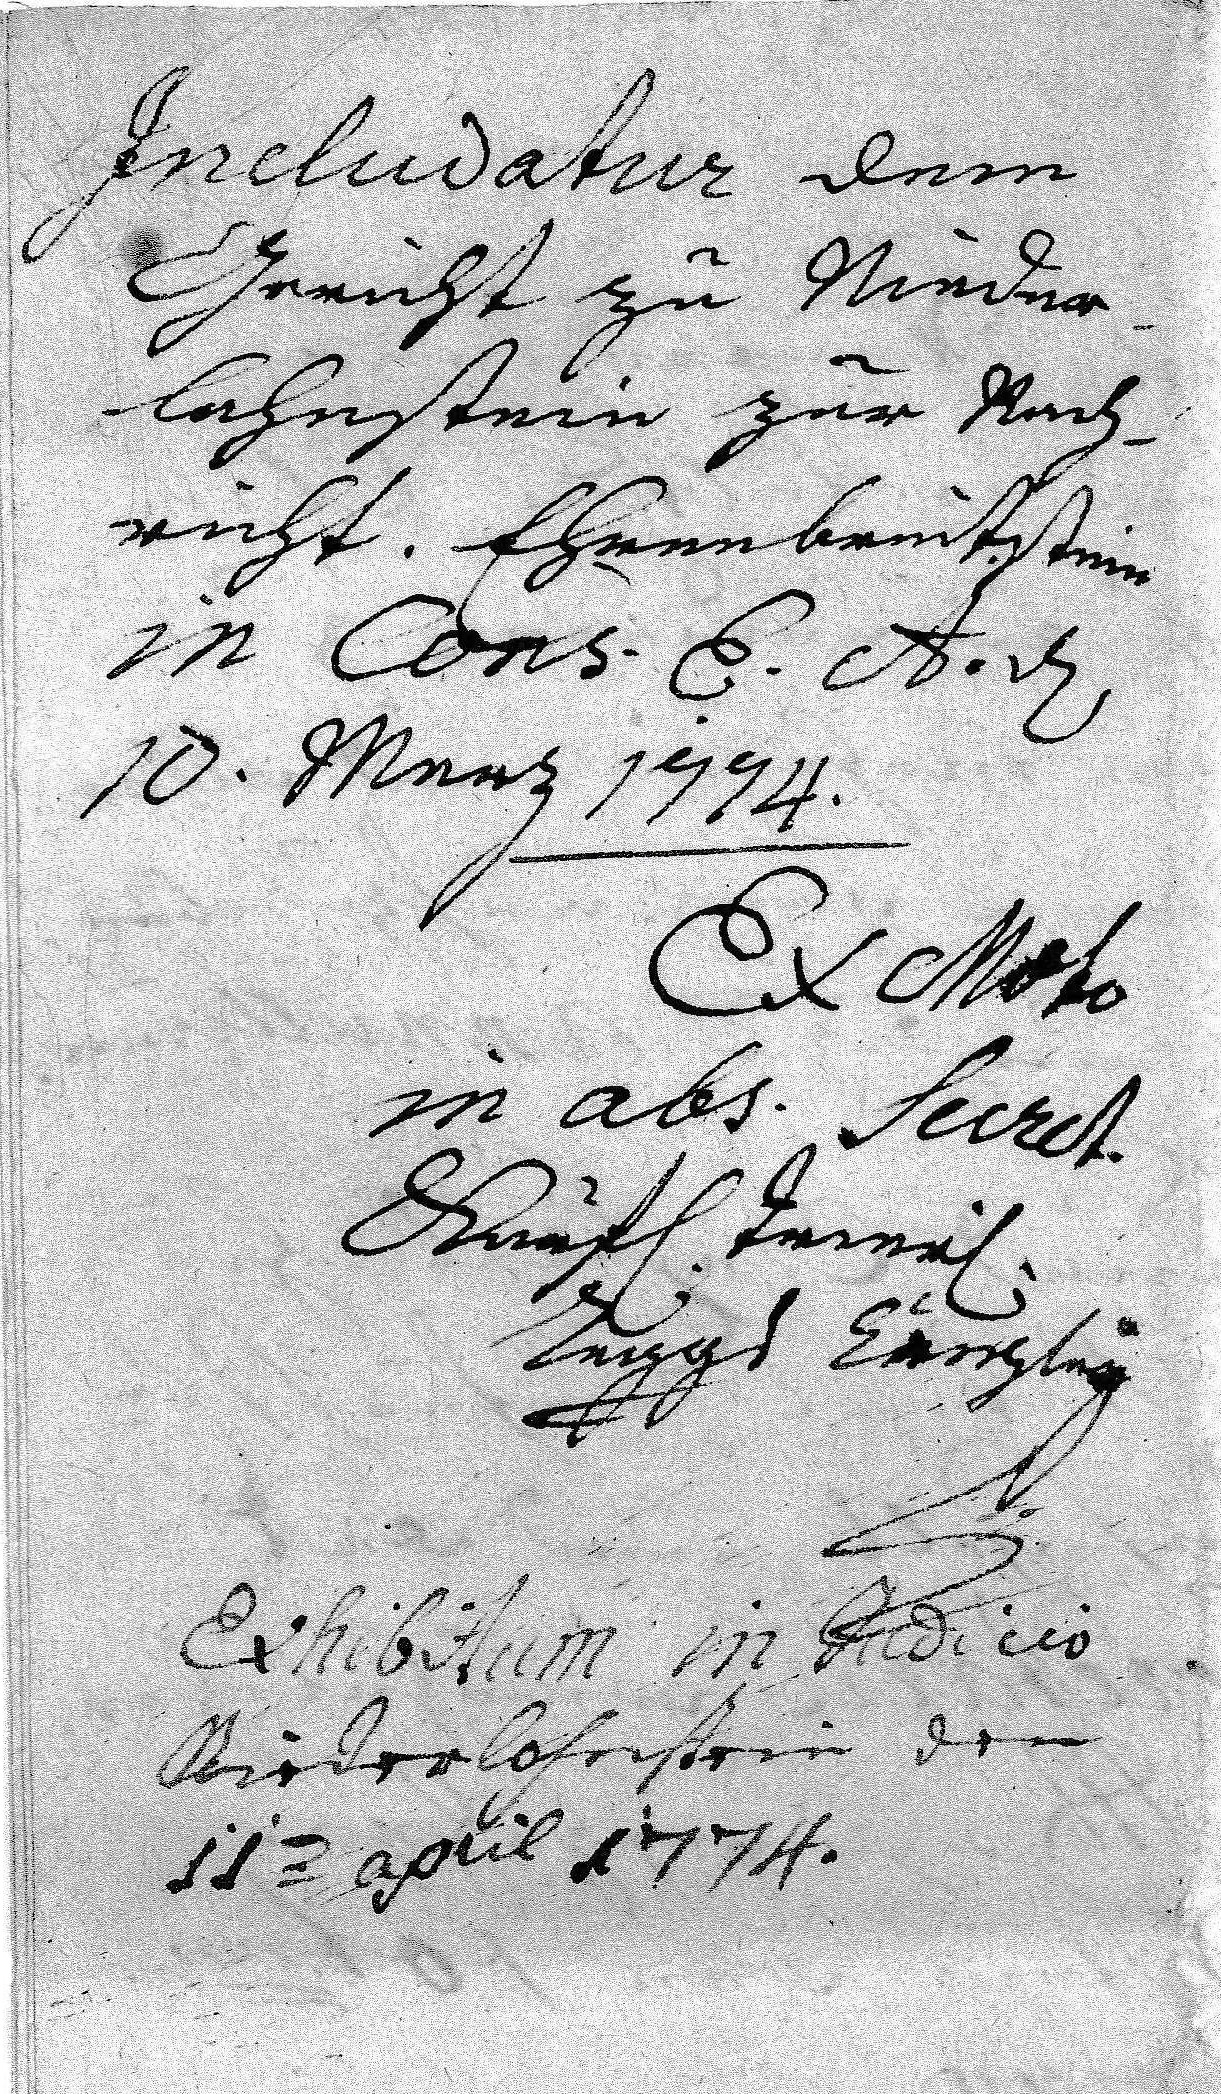 Includatur dem
Gericht zu Nieder-
lahnstein zur Nach-
richt. Ehrenbreitstein
in Cons. E. A. d
10. Merz 1774.
Ex Mdto
in abs. Secret.
Churfl. Trierl.
Canzley
Exhibitum in Judicio
Niederlahnstein den
11 april 1774.